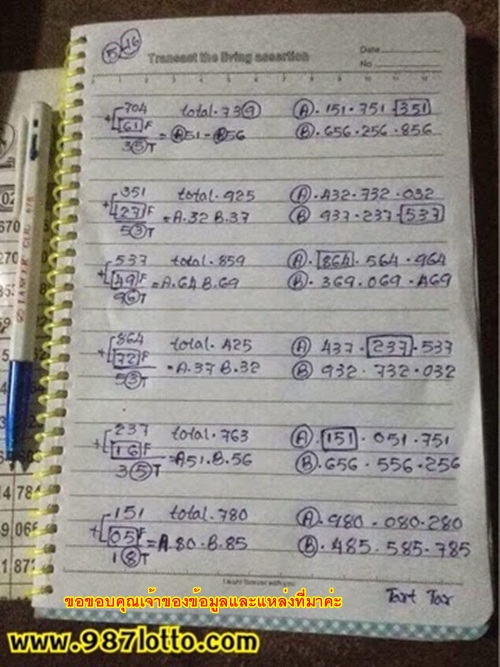 15-16
Transact the living assertion
Date
No
704 total. 739 Ⓐ. 151. 751 351
+ 61 F = A51 - B56 Ⓑ. 656. 256. 856
35 T
351 total. 925 Ⓐ. 432. 732. 032
+ 27 F = A.32 B.37 Ⓑ 937. 237. 537
53 T
537 total. 859 Ⓐ. 864. 564. 964
+ 49 F = A.64 B.69 Ⓑ. 369. 069. 469
96 T
864 total. 425 Ⓐ 437. 237. 537
+ 72 F = A.37 B.32 Ⓑ 932. 732. 032
53 T
237 total. 763 Ⓐ. 151. 051. 751
+ 16 F = A51. B.56 Ⓑ. 656. 556. 256
35 T
151 total. 780 Ⓐ. 980. 080. 280
+ 05 F = A.80. B.85 Ⓑ. 485. 585. 785
18 T
ขอขอบคุณเจ้าของข้อมูลและแหล่งที่มาค่ะ
www.987lotto.com